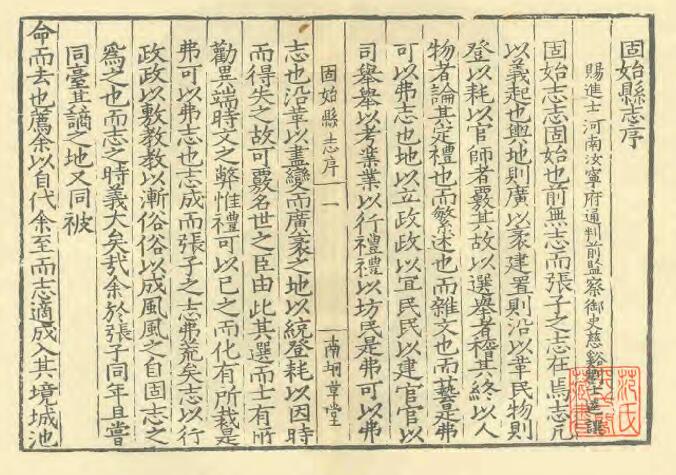 固始縣志序
賜進士河南汝寧府通判前監察御史慈谿士譔
固始志志固始也前無志而張子之志在焉志凡
以義起也輿地則廣以袤建置則沿以革民物則
登以耗以官師者覈其故以選舉者稽其終以人
物者論其定禮也而繁述也而雜文也而藝是弗
可以弗志也地以立政政以宜民民以建官官以
司舉舉以考業業以行禮禮以坊民是弗可以弗
固始縣志序
一
南坰草堂
志也沿革以盡變而廣袤之地以統登耗以因時
而得失之故可覈名世之臣由此其選而士有所
勸異端時文之弊惟禮可以已之而化有所裁是
弗可以弗志也志成而張子之志弗荒矣志以行
政政以敷教教以漸俗俗以成風風之自固志之
爲之也而志之時義大矣哉余於張子同年且嘗
同臺其謫之地又同被
命而去也薦余以自代余至而志適成入其境城池
范氏
天一閣
藏書